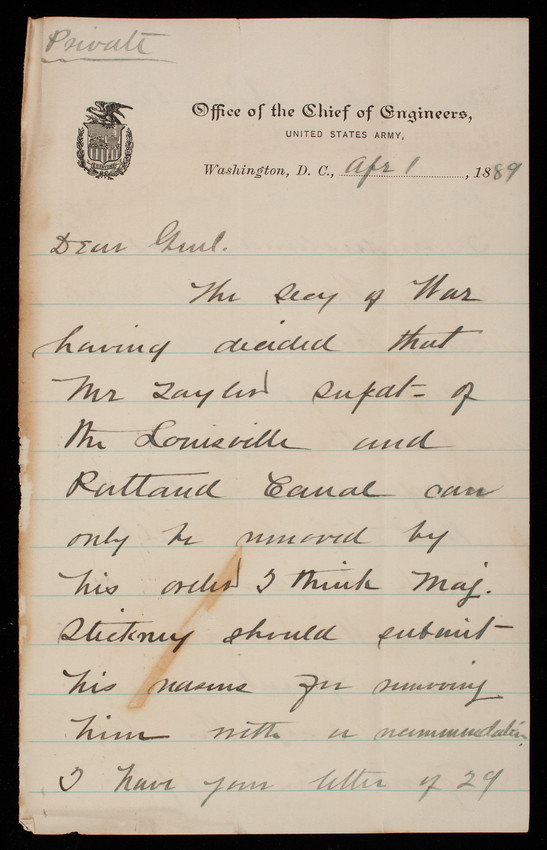 Private
Office of the Chief of Engineers,
UNITED STATES ARMY,
Washington, D. C., Apr 1, 1889
Dear Genl.
The Secy of War
having decided that
Mr Taylor supdt- of
the Louisville and
Portland Canal can
only be removed by
his order I think Maj.
Stickney should submit
his reasons for removing
him with a recommendation
I have your letter of 29